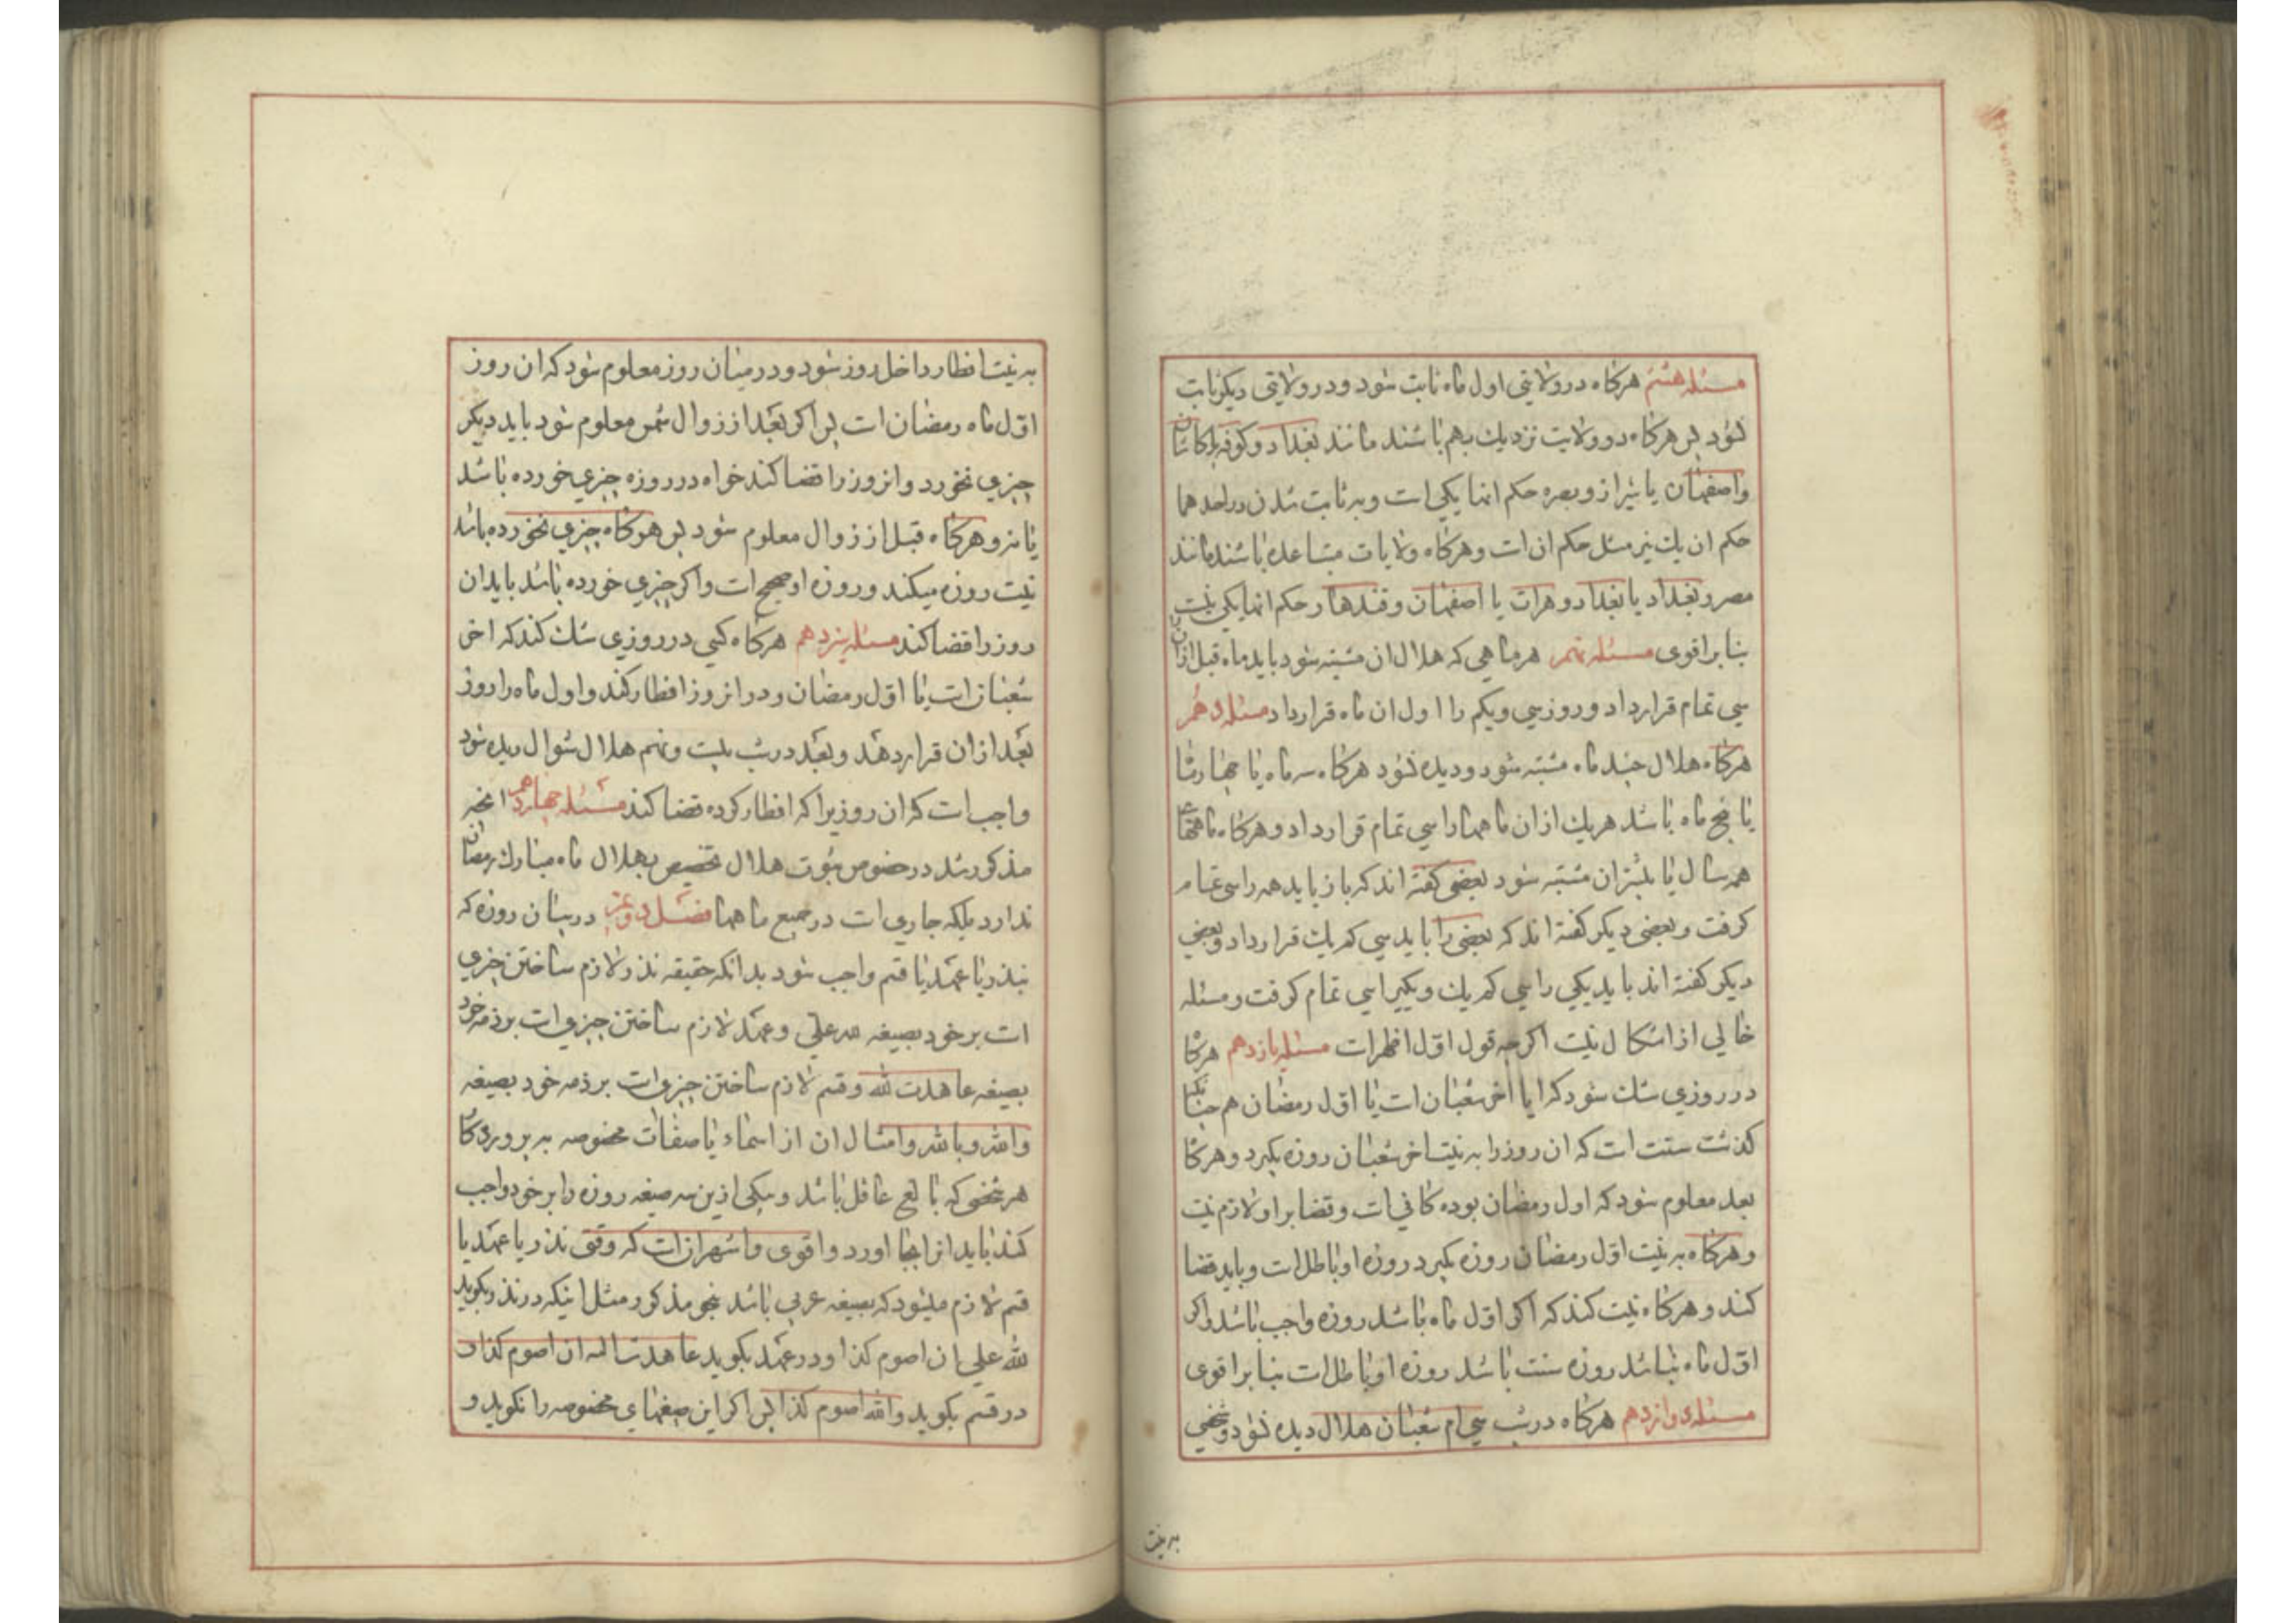 مسئله هشتم هرکاه در ولایتی اول ماه ثابت شود و در ولایتی دیکر ثابت
نشود پس هرکاه دو ولایت نزدیك بهم باشند مانند بغداد و کوفه یا کاشان
و اصفهان یا شیراز و بصره حکم انها یکی است و به ثابت شدن در احدهما
حکم ان یك نیز مثل حکم ان است و هرکاه ولایات متباعده باشند مانند
مصر و بغداد یا بغداد و هرات یا اصفهان و قندهار حکم انها یکی نیست
بنا بر اقوی مسئله نهم هر ماهی که هلال ان مشتبه شود باید ماه قبل از ان را
سی تمام قرار داد و روز سی و یکم را اول ان ماه قرار داد مسئله دهم
هرکاه هلال چند ماه مشتبه شود و دیده نشود هرکاه سه ماه یا چهار ماه
یا پنج ماه باشد هریك از ان ماهها را سی تمام قرار داد و هرکاه ماههای
همه سال یا بیشتر ان مشتبه شود بعضی کفته اند که باز باید همه را سی تمام
کرفت و بعضی دیکر کفته اند که بعضی را باید سی کم یك قرار داد و بعضی
دیکر کفته اند باید یکی را سی کم یك و یکیرا سی تمام کرفت و مسئله
خالی از اشکال نیست اکرچه قول اول اظهر است مسئله یازدهم هرکاه
در روزی شك شود که ایا اخر شعبان است یا اول رمضان هم چنانکه
کذشت سنت است که ان روز را به نیت اخر شعبان روزه بکیرد و هرکاه
بعد معلوم شود که اول رمضان بوده کافی است و قضا بر او لازم نیست
و هرکاه به نیت اول رمضان روزه بکیرد روزه او باطل است و باید قضا
کند و هرکاه نیت کند که اکر اول ماه باشد روزه واجب باشد و اکر
اول ماه نباشد روزه سنت باشد روزه او باطل است بنا بر اقوی
مسئله دوازدهم هرکاه در شب سی ام شعبان هلال دیده نشود و شخصی
به نیت
به نیت افطار داخل روز شود و در میان روز معلوم شود که ان روز
اول ماه رمضان است پس اکر بعد از زوال شمس معلوم شود باید دیکر
چیزی نخورد و انروز را قضا کند خواه در روزه چیزی خورده باشد
یا نه و هرکاه قبل از زوال معلوم شود پس هرکاه چیزی نخورده باشد
نیت روزه میکند و روزه او صحیح است و اکر چیزی خورده باشد باید ان
روز را قضا کند مسئله سیزدهم هرکاه کسی در روزی شك کند که اخر
شعبان است یا اول رمضان و در انروز افطار کند و اول ماه را روز
بعد از ان قرار دهد و بعد در شب بیست و نهم هلال شوال دیده شود
واجب است که ان روزیرا که افطار کرده قضا کند مسئله چهاردهم انچه
مذکور شد در خصوص ثبوت هلال تخصیص بهلال ماه مبارك رمضان
ندارد بلکه جاری است در جمیع ماهها فصل دوم در بیان روزه که
بنذر یا عهد یا قسم واجب شود بدانکه حقیقه نذر لازم ساختن چیزی
است بر خود بصیغه لله علی و عهد لازم ساختن چیزی است بر ذمه خود
بصیغه عاهدت لله و قسم لازم ساختن چیزی است بر ذمه خود بصیغه
والله و بالله و امثال ان از اسماء یا صفات مخصوصه به پروردکار
هر شخصی که بالغ عاقل باشد و بیکی ازین سه صیغه روزه را بر خود واجب
کند باید انرا بجا اورد و اقوی و اشهر ان است که وقتی نذر یا عهد یا
قسم لازم میشود که بصیغه عربی باشد بنحو مذکور مثل اینکه در نذر بکوید
لله علی ان اصوم کذا و در عهد بکوید عاهدت الله ان اصوم کذا و
در قسم بکوید والله اصوم کذا پس اکر این صیغهای مخصوصه را نکوید و